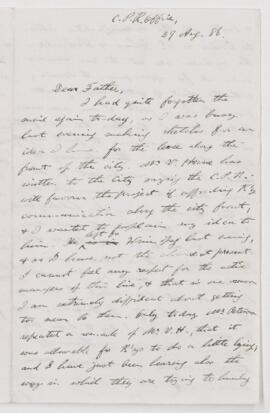 C.P.R. Office,
29 Aug. 86.
Dear Father,
I had quite forgotten the
mail again to-day, as I was busy
last evening making sketches for an
idea I have for the line along the
front of the city. Mr V. Horne has
written to the City saying the C.P.R.
will favour the project of affording R'y
communication along the city front,
& I wanted to my idea to
him. He left Winnipeg last evening,
& as I have not the at present
I cannot feel any respect for the active
managers of this line, & that is one reason
I am extremely diffident about getting
to them. Only to-day Mr Peterson
repeated a remark of Mr V.H., that it
was allowable for R'ys to do a little lying,
and I have just been hearing also the
way in which they are trying to